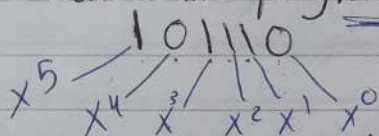 101110
x⁵ x⁴ x³ x² x¹ x⁰